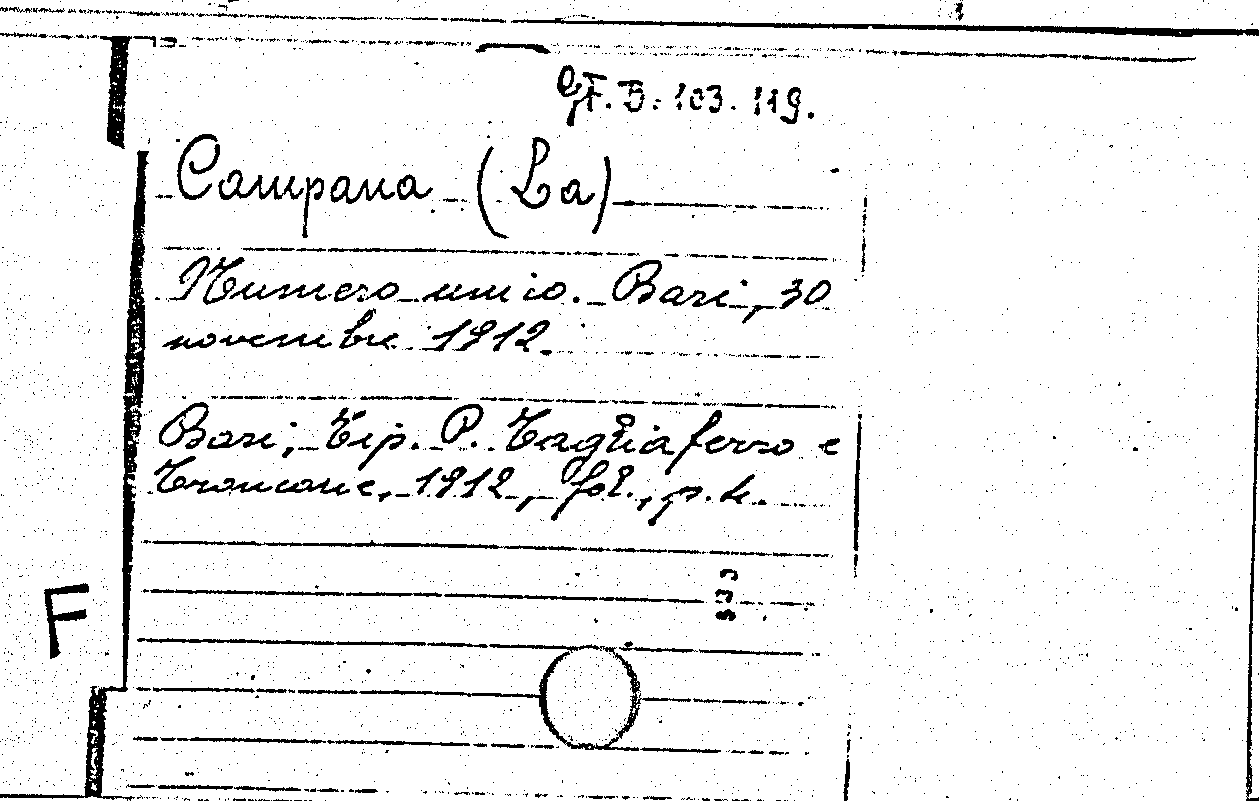 G.F. B. 103. 119.
Campana (La)
Numero unico. Bari, 30
novembre 1912.
Bari, Tip. P. Tagliaferro e
Troncone, 1912, fol., p. 4.
F